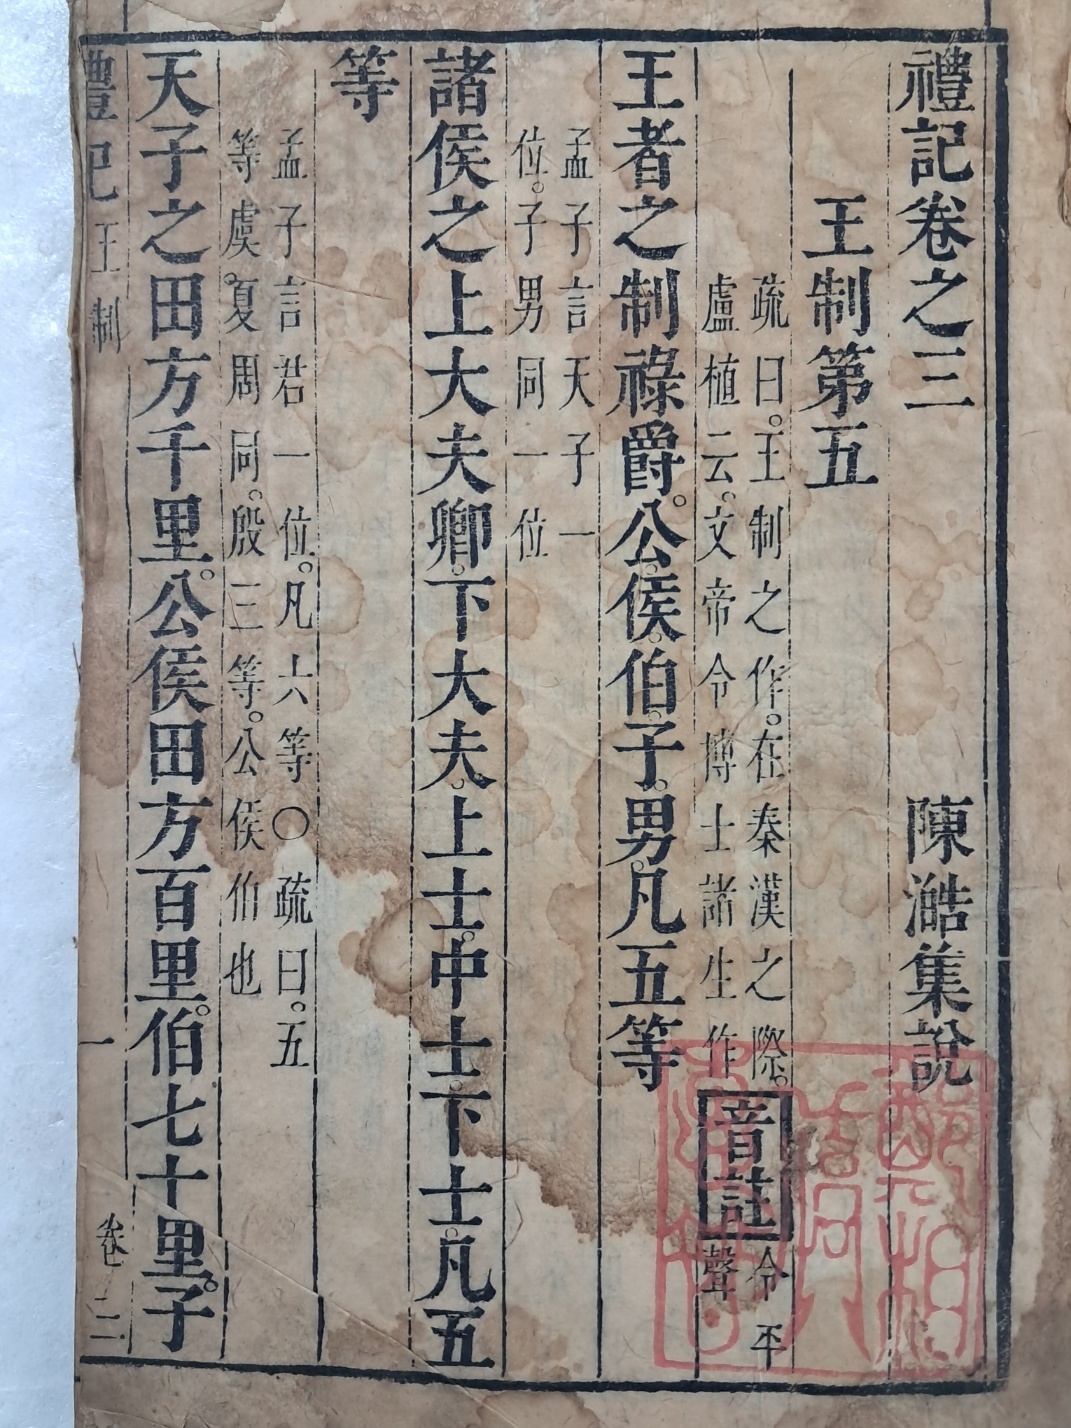 禮記卷之三
陳澔集說
王制第五
疏曰。王制之作。在秦漢之際。
盧植云。文帝令博士諸生作
音註
令平
聲
王者之制祿爵。公。侯。伯。子。男。凡五等
孟子言天子一
位。子男同一位
諸侯之上大夫卿。下大夫。上士。中士。下士。凡五
等
孟子言君一位。凡六等〇疏曰。五
等虞。夏周同。殷三等。公侯伯也
天子之田方千里。公侯田方百里。伯七十里。子
禮記
王制
一
卷三